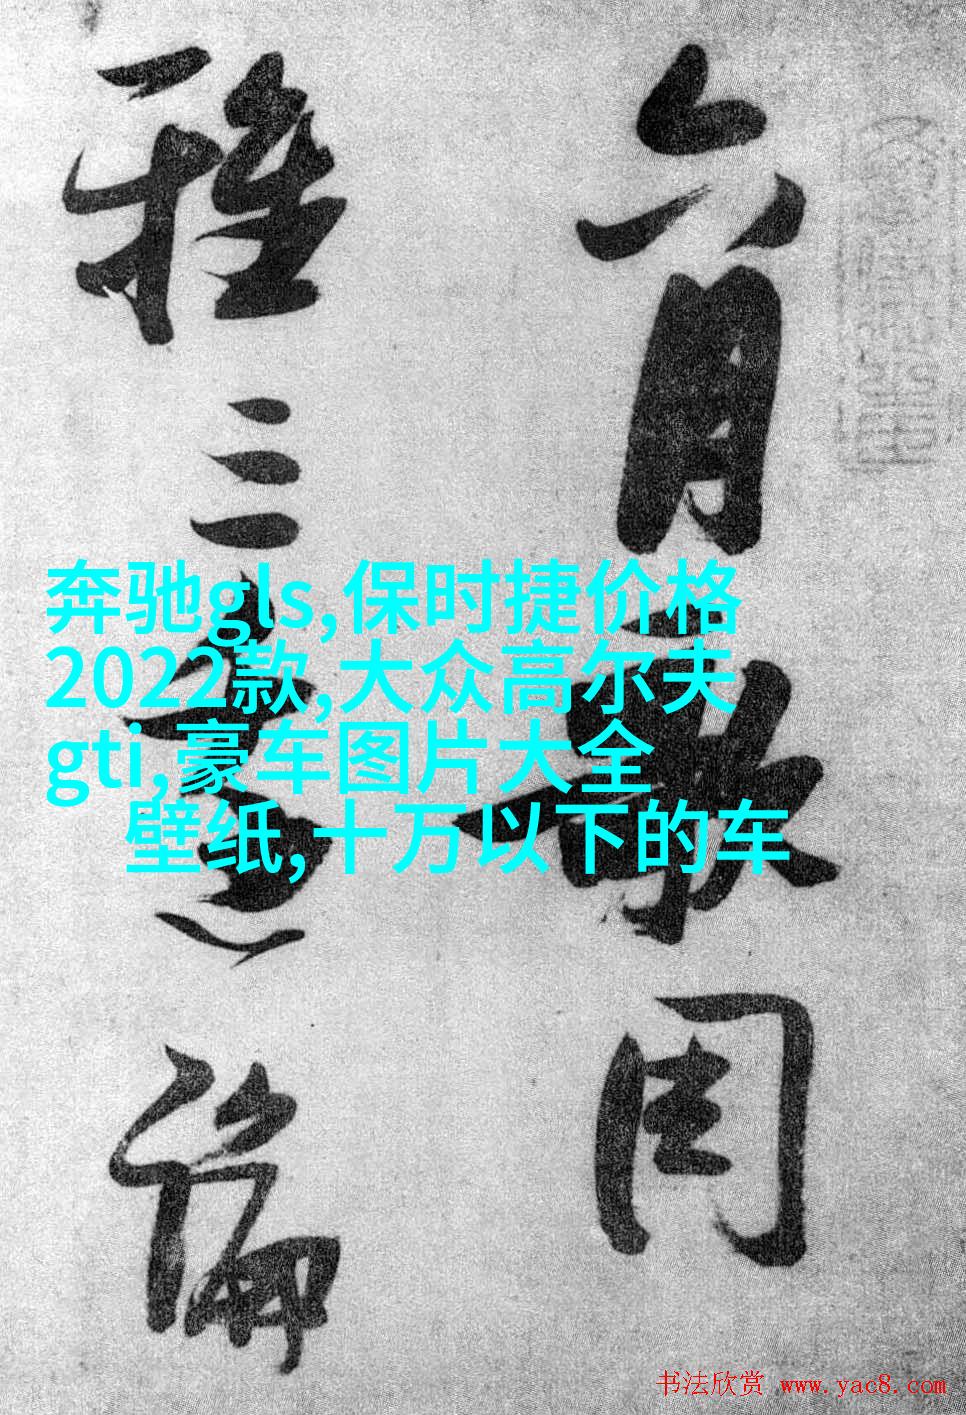 六月 周
雅三 論
奔驰gls,保时捷价格
2022款,大众高尔夫
gti,豪车图片大全
壁纸,十万以下的车
书法欣赏 www.yac8.com